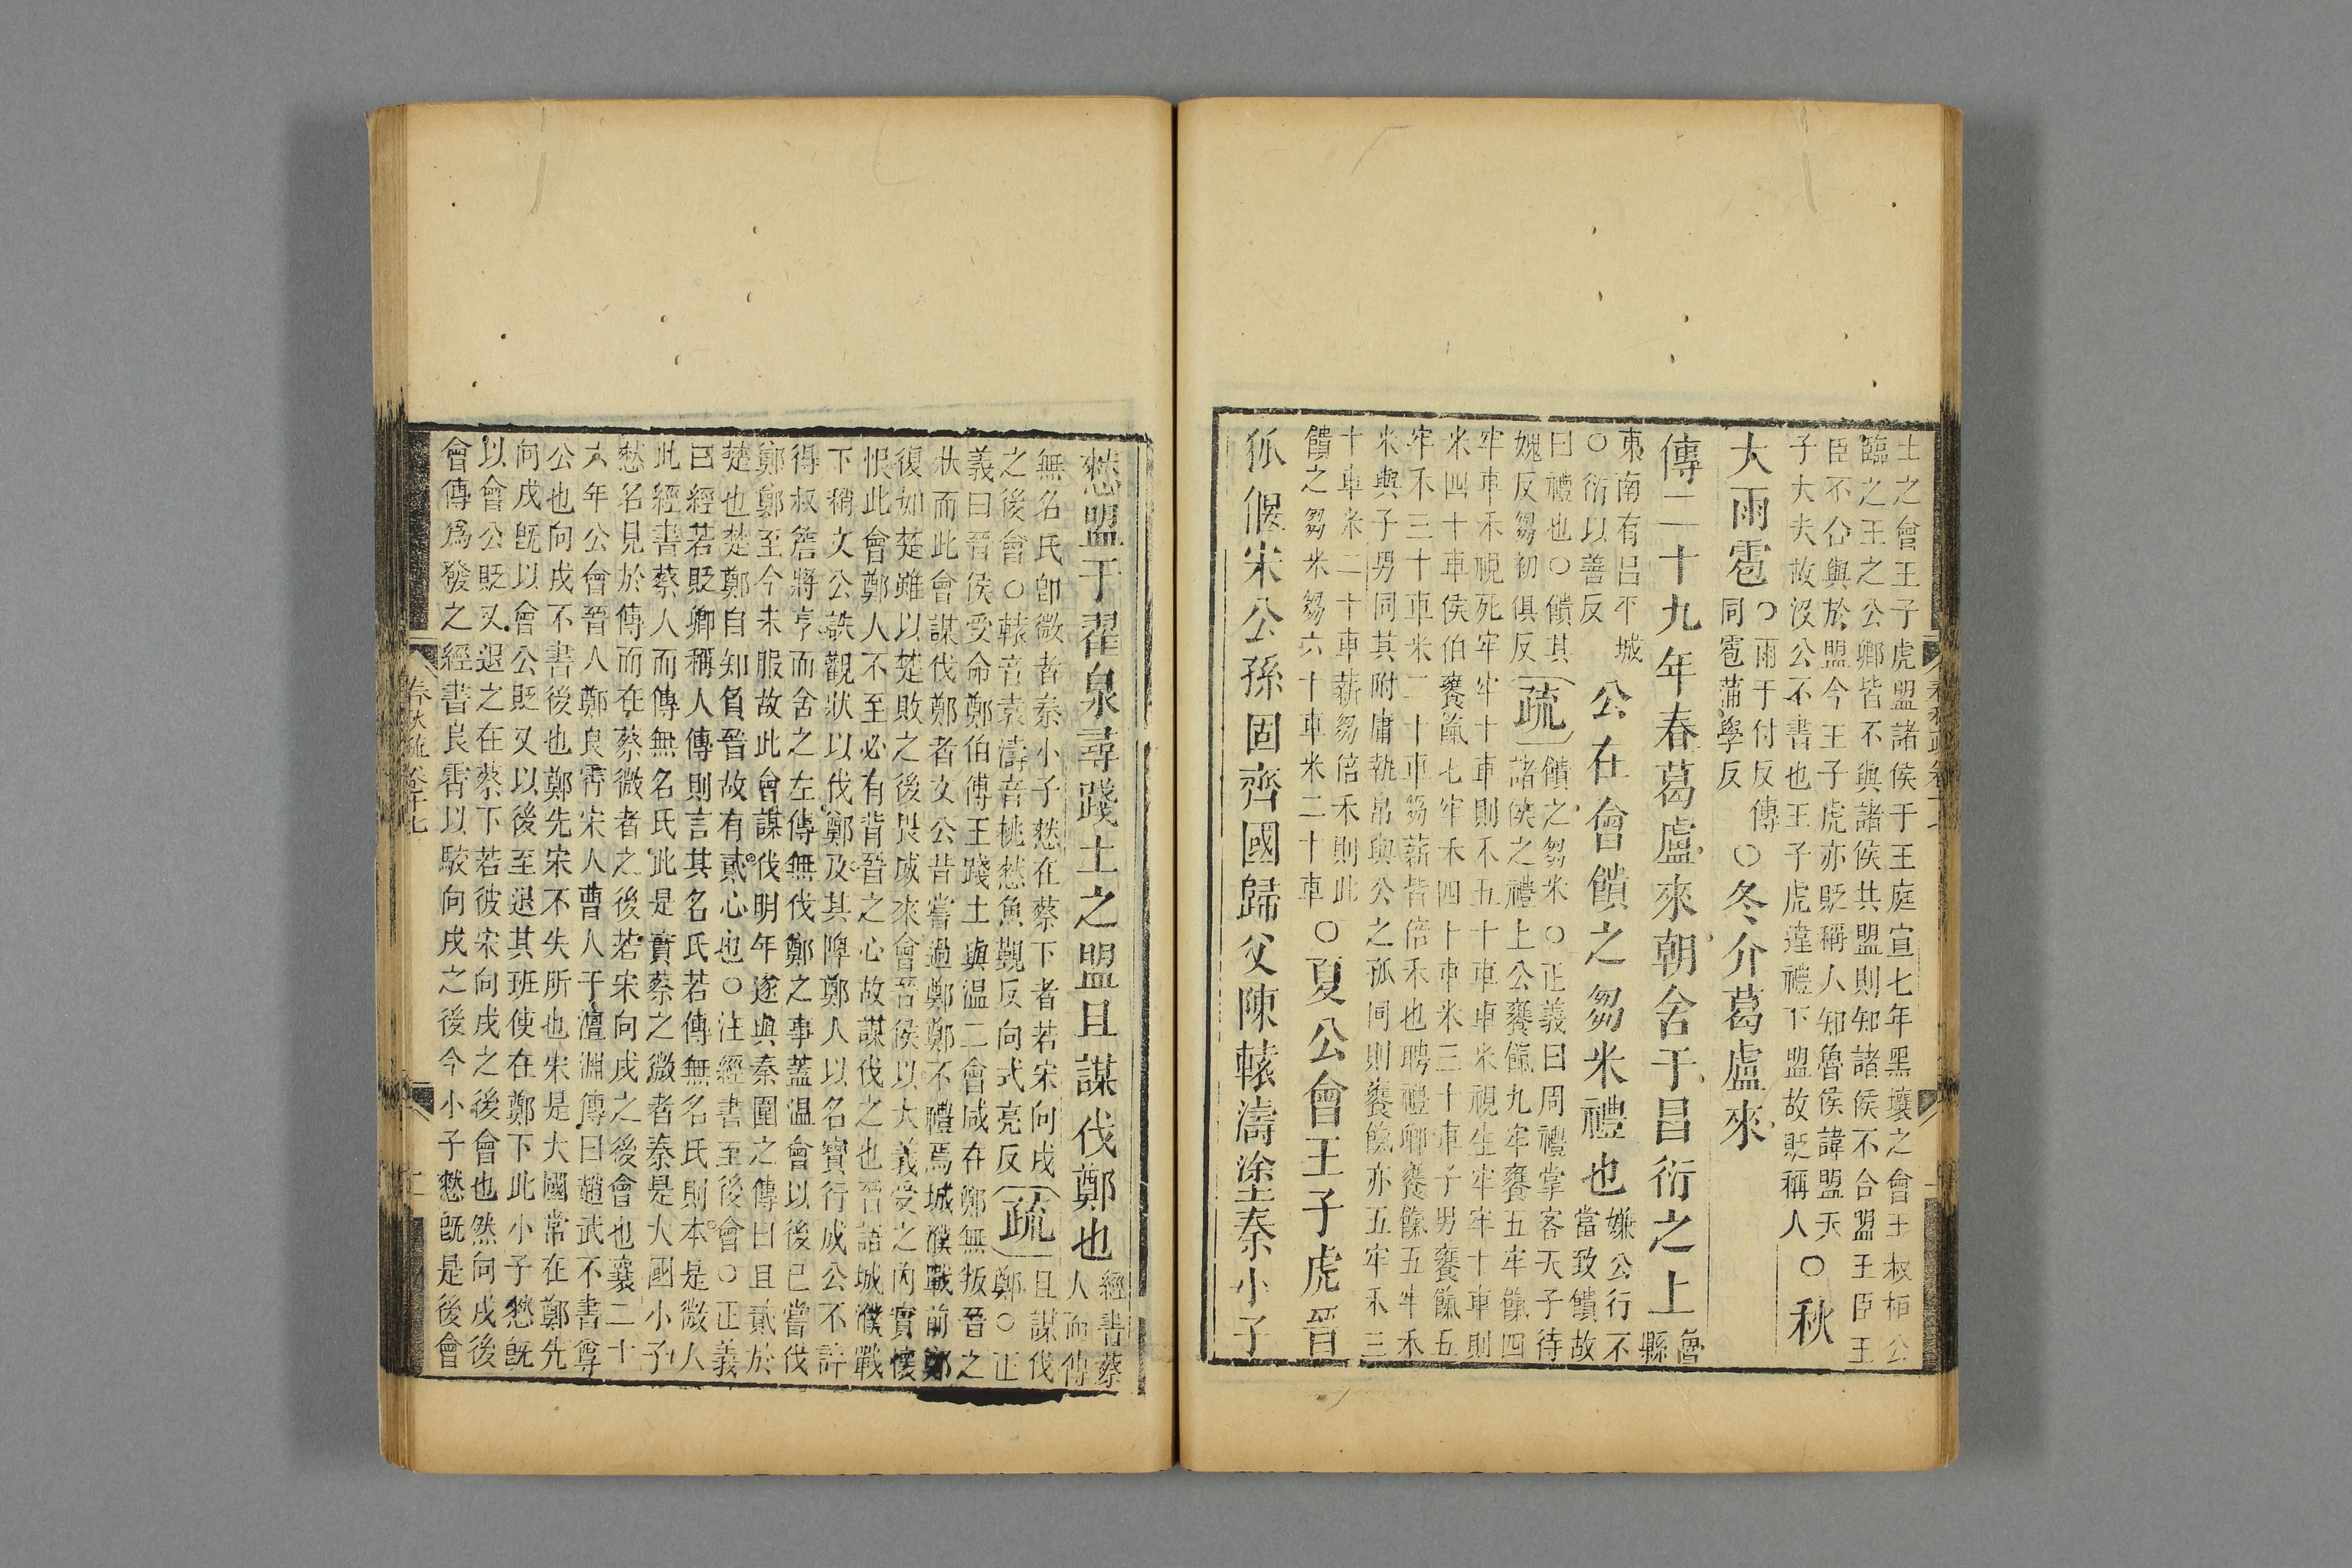 土之會王子虎盟諸侯于王庭宣七年黑壤之會王叔桓公
臨之王之公卿皆不與諸侯共盟則知諸侯不合盟王臣王
臣不合與於盟今王子虎亦貶稱人知魯侯諱盟天
子大夫故沒公不書也王子虎違禮下盟故貶稱人
○秋
大雨雹
○雨于付反傳
同雹蒲學反
○冬介葛盧來
傳二十九年春葛盧來朝舍于昌衍之上
魯縣
東南有昌平城
○衍以善反
公在會饋之芻米禮也
嫌公行不
當致饋故
曰禮也○饋其
媿反芻初俱反
疏
饋之芻米○正義曰周禮掌客天子待
諸侯之禮上公饔餼九牢饔五牢餼四
牢車禾視死牢牢十車則禾五十車車米視生牢牢十車則
米四十車侯伯饔餼七牢禾四十車米三十車子男饔餼五
牢禾三十車米二十車芻薪皆倍禾也聘禮卿饔餼五牢禾
米與子男同其附庸執帛與公之孤同則饔餼亦五牢禾三
十車米二十車薪芻倍禾則此
饋之芻米芻六十車米二十車
○夏公會王子虎晉
狐偃宋公孫固齊國歸父陳轅濤塗秦小子
憖盟于翟泉尋踐土之盟且謀伐鄭也
經書蔡
人而傳
無名氏卽微者秦小子憖在蔡下者若宋向戌
之後會○轅音袁濤音桃憖魚覲反向式亮反
疏
且謀伐
鄭○正
義曰晉侯受命鄭伯傅王踐土與温二會咸在鄭無叛晉之
狀而此會謀伐鄭者文公昔嘗過鄭鄭不禮焉城濮戰前鄭
復如楚雖以楚敗之後畏威來會晉侯以大義受之内實懷
恨此會鄭人不至必有背晉之心故謀伐之也晉語城濮戰
下稱文公誅觀狀以伐鄭及其陴鄭人以名寶行成公不許
得叔詹將亨而舍之左傳無伐鄭之事蓋温會以後已嘗伐
鄭鄭至今未服故此會謀伐明年遂與秦圍之傳曰且貳於
楚也楚鄭自知負晉故有貳心也○注經書至後會○正義
曰經若貶卿稱人傳則言其名氏若傳無名氏則本是微人
此經書蔡人而傳無名氏此是實蔡之微者秦是大國小子
憖名見於傳而在蔡微者之後若宋向戌之後會也襄二十
六年公會晉人鄭良霄宋人曹人于澶淵傳曰趙武不書尊
公也向戌不書後也鄭先宋不失所也宋是大國常在鄭先
向戌旣以會公貶又以後至退其班使在鄭下此小子憖旣
以會公貶又退之在蔡下若彼宋向戌之後會也然向戌後
會傳爲發之經書良霄以駮向戌之後今小子憖旣是後會
春秋疏卷十七